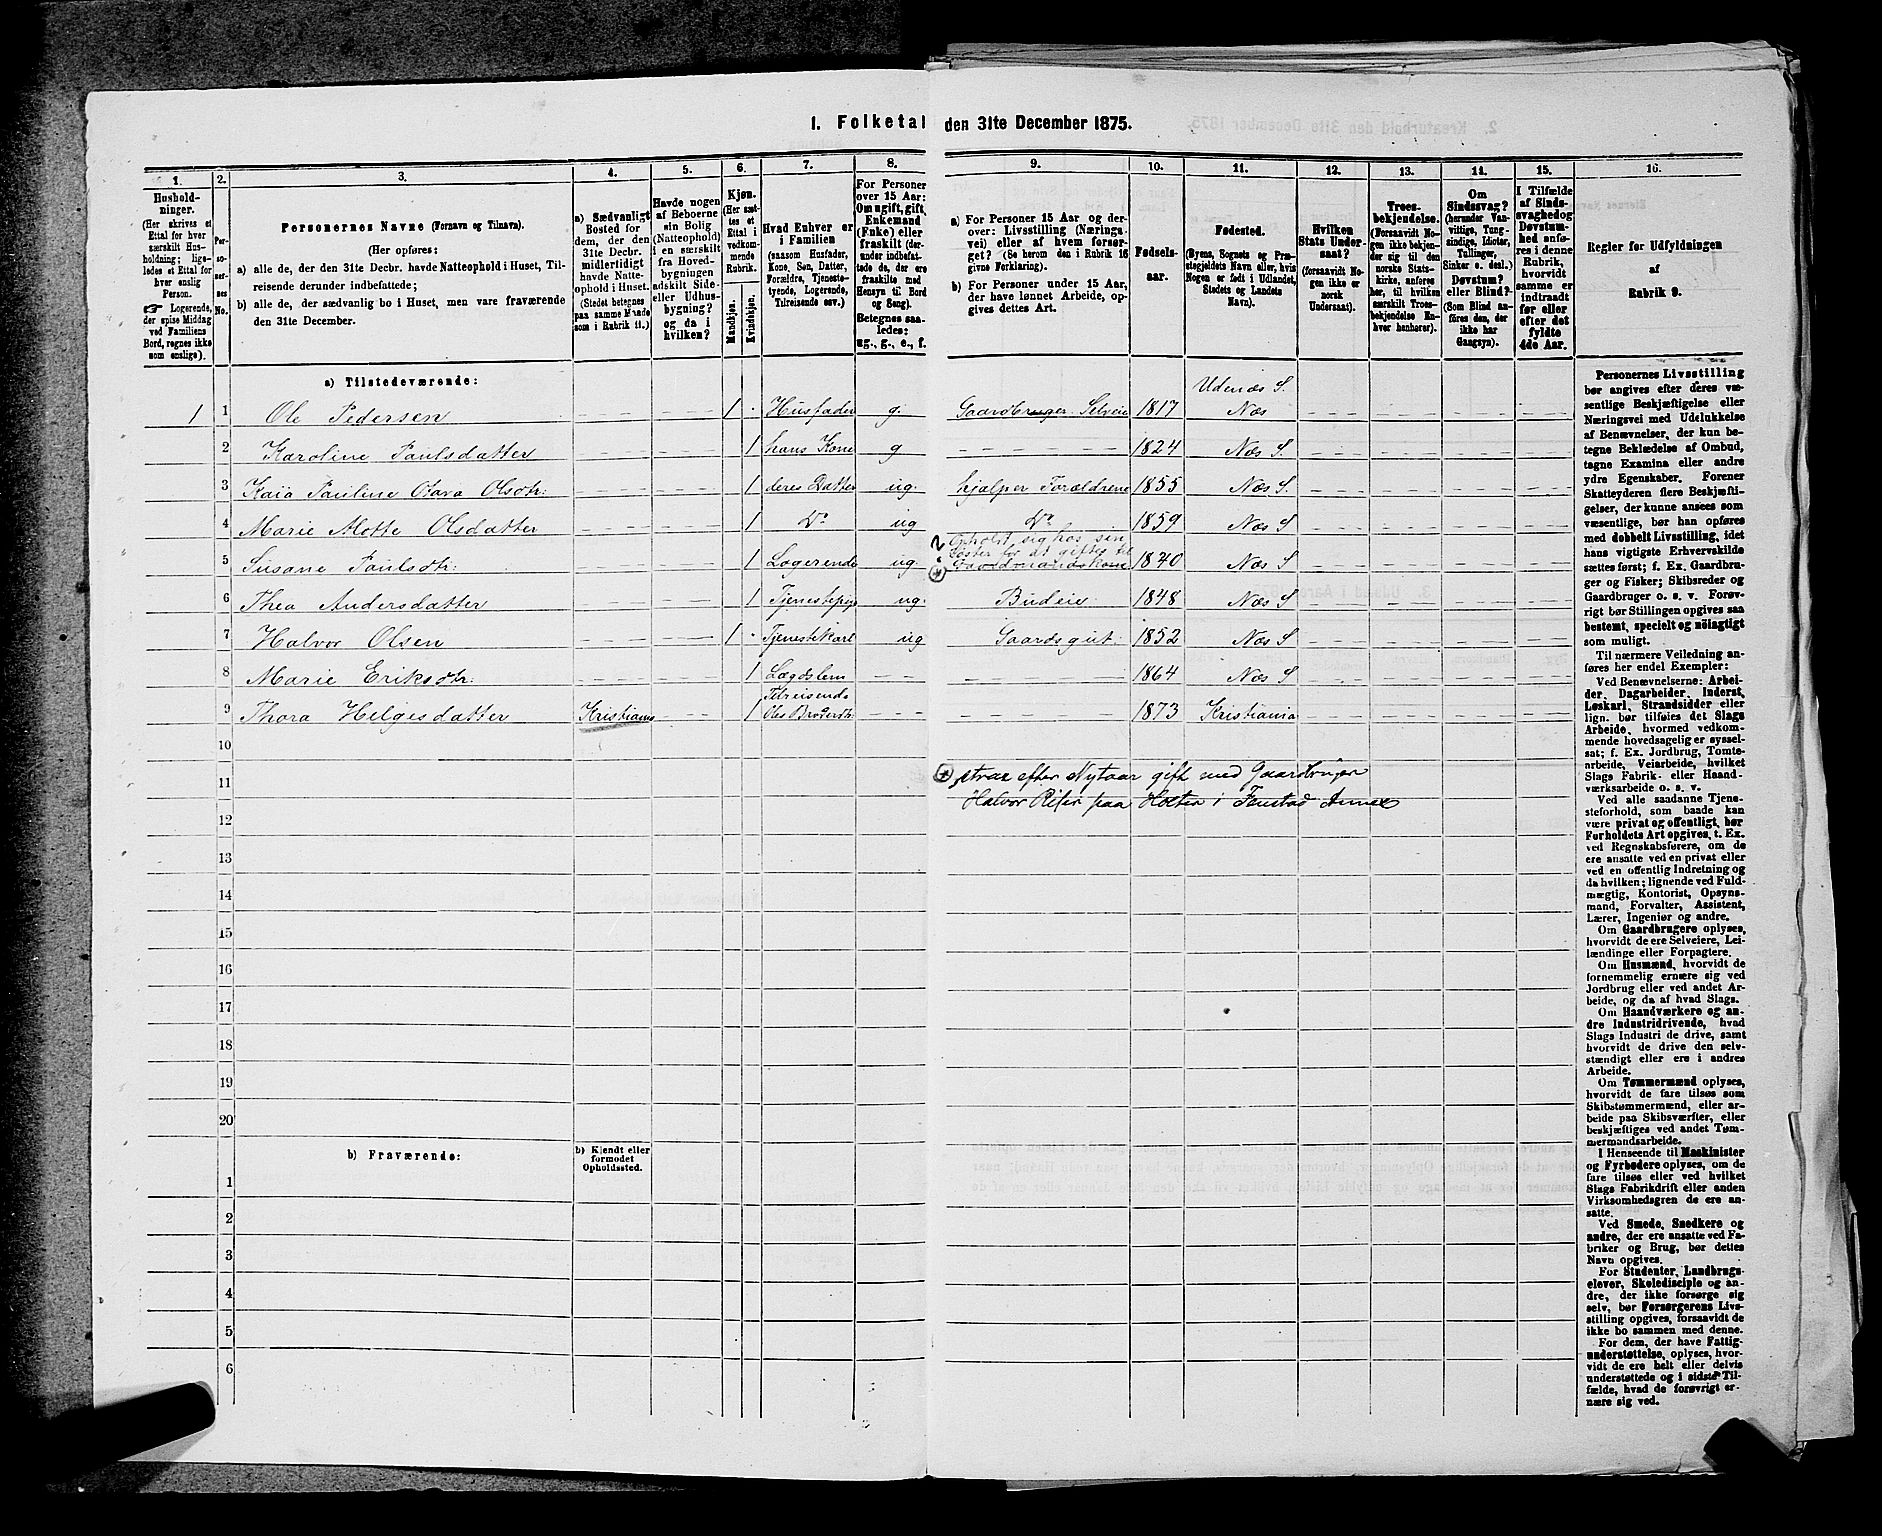 1. Folketal den 31te December 1875.
1. 2. 3. 4. 5. 6. 7. 8. 9. 10. 11. 12. 13. 14. 15. 16.
Hushold-
ninger.
(Her skrives et
Ettal for hver
særskilt Hus-
holdning; lige-
ledes et Ettal for
hver enslig
Person.
☞ Logerende,
der spise Middag
ved Familiens
Bord, regnes ikke
som enslige).
Per-
so-
ner-
nes
No.
Personernes Navne (Fornavn og Tilnavn).
(Her opføres:
a) alle de, der den 31te Decbr. havde Natteophold i Huset, Til-
reisende derunder indbefattede;
b) alle de, der sædvanlig bo i Huset, men vare fraværende
den 31te December.
a) Sædvanligt
Bosted for
dem, der den
31te Decbr.
midlertidigt
havde Natte-
ophold i Huset.
(Stedet betegnes
paa samme Maade
som i Rubrik 11.)
Havde nogen
af Beboerne
sin Bolig
(Natteophold)
i en særskilt
fra Hoved-
bygningen
adskilt Side-
eller Udhus-
bygning?
og da i
hvilken?
Kjøn.
(Her sæt-
tes et
Ettal i
vedkom-
mende
Rubrik.
Mandkjøn.
Kvindekjøn.
Hvad Enhver er
i Familien
(saasom Husfader,
Kone, Søn, Datter,
Forældre, Tjeneste-
tyende, Logerende,
Tilreisende osv.)
For Personer
over 15 Aar:
Om ugift, gift,
Enkemand
(Enke) eller
fraskilt (der-
under indbefat-
tede de, der ere
fraskilte med
Hensyn til Bord
og Seng).
Betegnes saa-
ledes:
ug., g., e., f.
a) For Personer 15 Aar og der-
over: Livsstilling (Nærings-
vei) eller af hvem forsør-
get? (Se herom den i Rubrik 16
givne Forklaring).
b) For Personer under 15 Aar,
der have lønnet Arbeide, op-
gives dettes Art.
Fødsels-
aar.
Fødested.
(Byens, Sognets og Præ-
stegjeldets Navn eller, hvis
Nogen er født i Udlandet,
Stedets og Landets
Navn).
Hvilken
Stats Under-
saat?
(forsaavidt No-
gen ikke er
norsk
Undersaat).
Troes-
bekjendelse.
(Forsaavidt No-
gen ikke bekjen-
der sig til den
norske Stats-
kirke, anføres
her, til hvilken
særskilt Troes-
bekjendelse En-
hver henhører).
Om
Sindssvag?
(herunder Van-
vittige, Tung-
sindige, Idioter,
Tullinger,
Sinker o. desl.)
Døvstum?
eller Blind?
(Som Blind an-
føres den, der
ikke har
Gangsyn).
I Tilfælde
af Sinds-
svaghed og
Døvstum-
hed anfø-
res i denne
Rubrik,
hvorvidt
samme er
indtraadt
før eller
efter det
fyldte
4de Aar.
Regler for Udfyldningen
af
Rubrik 9.
a) Tilstedeværende:
Udenæs S.
1 1 Ole Pedersen 1 Husfader g. Gaardbruger Selveie 1817 Næs
2 Karoline Paulsdatter 1 hans Kone g 1824 Næs S.
3 Kaia Pauline Olava Olsdtr: 1 deres Datter ug. hjælper Forældrene 1855 Næs S.
4 Marie Alette Olsdatter 1 Do ug Do 1859 Næs S
Opholdt sig hos sin
Søster for at giftes til
5 Susane Paulsdtr: 1 Logerende ug. Gaardmandskone 1840 Næs S
6 Thea Andersdatter 1 Tjenestepige ug. Budeie 1848 Næs S
7 Halvor Olsen 1 Tjenestekarl ug Gaardsgut: 1852 Næs S
8 Marie Eriksdtr: 1 Lægdslem 1864 Næs S
Tilreisende
9 Thora Helgesdatter Kristiania 1 Oles Broderdtr: 1873 Kristiania
10
11 strax efter Nytaar gift med Gaardbruger
Halvor paa i Annex
12
13
14
15
16
17
18
19
20
b) Fraværende:
b) Kjendt eller
formodet
Opholdssted.
1
2
3
4
5
6
Personernes Livsstilling
bør angives efter deres væ-
sentlige Beskjæftigelse eller
Næringsvei med Udelukkelse
af Benævnelser, der kun be-
tegne Beklædelse af Ombud,
tagne Examina eller andre
ydre Egenskaber. Forener
Skatteyderen flere Beskjæfti-
gelser, der kunne ansees som
væsentlige, bør han opføres
med dobbelt Livsstilling, idet
hans vigtigste Erhvervskilde
sættes først; f. Ex. Gaardbru-
ger og Fisker; Skibsreder og
Gaardbruger o. s. v. Forøv-
rigt bør Stillingen opgives saa
bestemt, specielt og nöiagtigt
som muligt.
Til nærmere Veiledning an-
føres her endel Exempler:
Ved Benævnelserne: Arbei-
der, Dagarbeider, Inderst,
Løskarl, Strandsidder eller
lign. bør tilføies det Slags
Arbeide, hvormed vedkom-
mende hovedsagelig er syssel-
sat; f. Ex. Jordbrug, Tomte-
arbeide, Veiarbeide, hvilket
Slags Fabrik- eller Haand-
værksarbeide o. s. v.
Ved alle saadanne Tjene-
steforhold, som baade kan
være privat og offentligt, bør
Forholdets Art opgives, t. Ex.
ved Regnskabsførere, om de
ere ansatte ved en privat eller
ved en offentlig Indretning og
da hvilken; lignende ved Fuld-
mægtig, Kontorist, Opsyns-
mand, Forvalter, Assistent,
Lærer, Ingeniør og andre.
Om Gaardbrugere oplyses,
hvorvidt de ere Selveiere, Lei-
lændinge eller Forpagtere.
Om Husmænd, hvorvidt de
fornemmelig ernære sig ved
Jordbrug eller ved andet Ar-
beide, og da af hvad Slags.
Om Haandværkere og an-
dre Industridrivende, hvad
Slags Industri de drive, samt
hvorvidt de drive den selv-
stændigt eller ere i andres
Arbeide.
Om Tømmermænd oplyses,
hvorvidt de fare tilsøs som
Skibstømmermænd, eller ar-
beide paa Skibsværfter, eller
beskjæftiges ved andet Tøm-
mermandsarbeide.
I Henseende til Maskinister
og Fyrbødere oplyses, om de
fare tilsøs eller ved hvilket
Slags Fabrikdrift eller anden
Virksomhedsgren de ere an-
satte.
Ved Smede, Snedkere og
andre, der ere ansatte ved Fa-
briker og Brug, bør dettes
Navn opgives.
For Studenter, Landbrugs-
elever, Skoledisciple og an-
dre, der ikke forsørge sig
selv, bør Forsørgerens Livs-
stilling opgives, forsaavidt de
ikke bo sammen med denne.
For dem, der have Fattig-
understøttelse, oplyses, hvor-
vidt de ere helt eller delvis
understøttede og i sidste Til-
fælde, hvad de forøvrigt er-
nære sig ved.